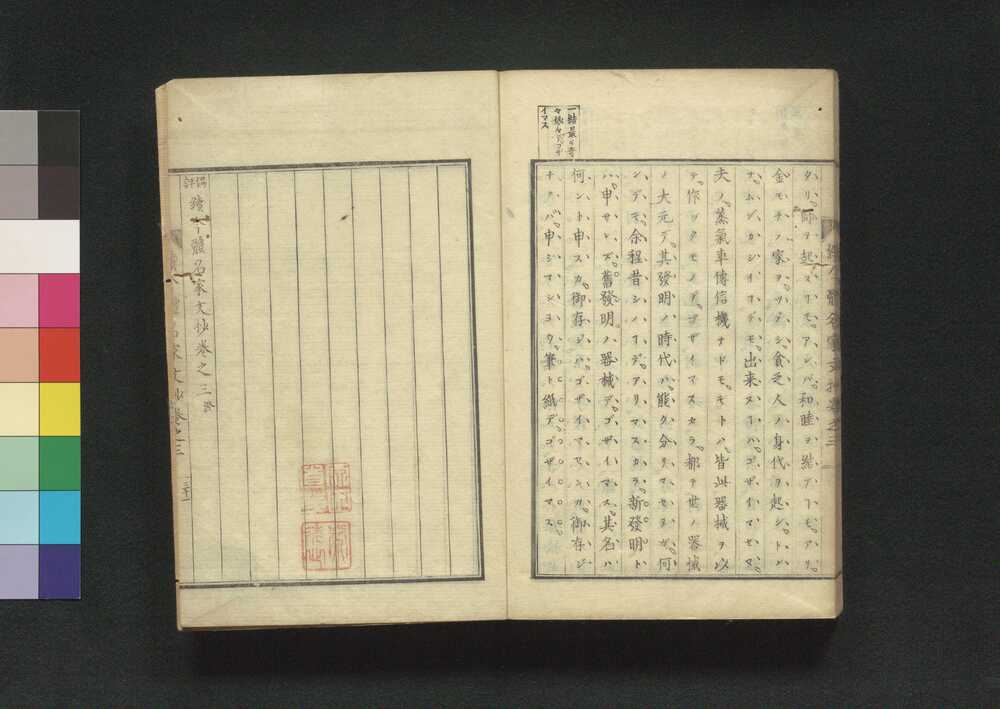 一結最モ奇
イマス
タリ。師ヲ起スコモ。アレバ。和睦ヲ結ブコモ。アリ。
金モチノ家ヲ。ツブシ。貧乏人ノ身代ヲ起シ。ドンナ
ムヅカシイコデモ。出来ヌコハ。ゴザイマセヌ。
夫ノ蒸氣車傳信機ナドモ。モトハ。皆此器械ヲ以
テ。作ツタモノデ。ゴザイマスカラ。都テ世ノ器械
ノ大元デ。其發明ノ時代ハ。能ク分リマセヌガ。何
ンデモ余程昔シノコデアリマスカラ。新發明ト
ハ。申サレズ。舊發明ノ器械デ。ゴザイマス。其名ハ
何ント申スカ。御存ジハゴザイマセンカ。御存ジ
ナクバ申シマシヨウ。筆ト紙デゴザイマス。
續今體名家文抄卷之三終
三十一